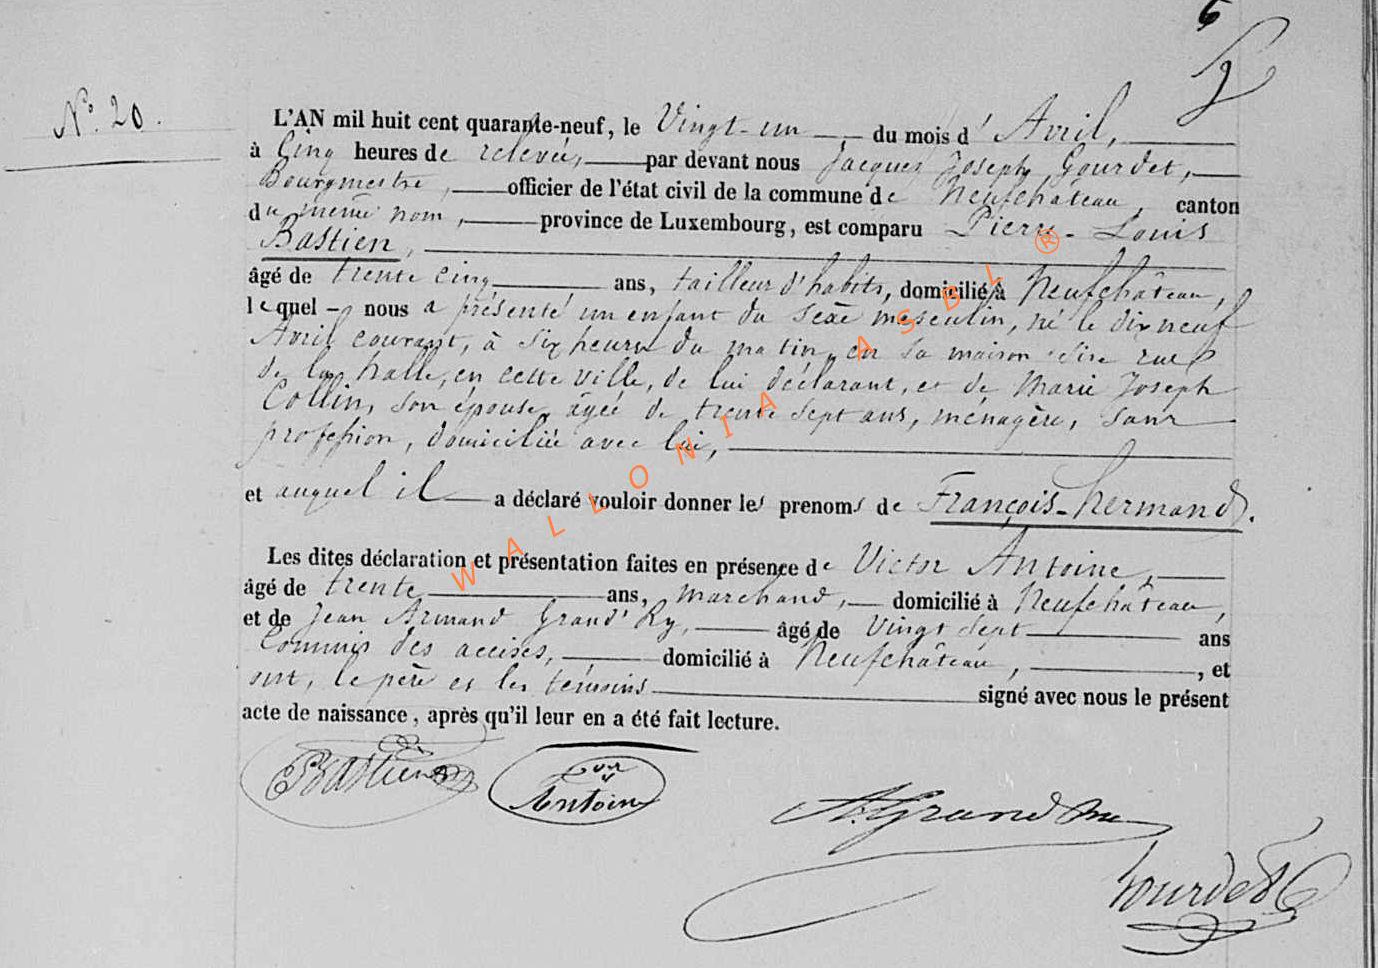 6
N.° 20.
L'AN mil huit cent quarante-neuf, le Vingt-un du mois d' Avril,
à Cinq heures de relevée, par devant nous Jacques Joseph Gourdet,
Bourgmestre, officier de l'état civil de la commune de Neufchâteau, canton
du même nom, province de Luxembourg, est comparu Pierre-Louis
Bastien,
âgé de trente cinq ans, tailleur d'habits, domicilié à Neufchâteau,
lequel nous a présenté un enfant du sexe masculin, né le dix neuf
Avril courant, à six heures du matin, en sa maison sise rue
de la halle, en cette ville, de lui déclarant, et de Marie Joseph
Collin, son épouse, âgée de trente sept ans, ménagère, sans
profession, domiciliée avec lui,
et auquel il a déclaré vouloir donner les prenoms de François-hermand.
Les dites déclaration et présentation faites en présence de Victor Antoine,
âgé de trente ans, marchand, domicilié à Neufchâteau,
et de Jean Armand Grand'Ry, âgé de vingt sept ans
Commis des accises, domicilié à Neufchâteau, et
ont, le père et les témoins signé avec nous le présent
acte de naissance, après qu'il leur en a été fait lecture.
Bastien Antoine
Gourdet
WALLONIA ASBL ®